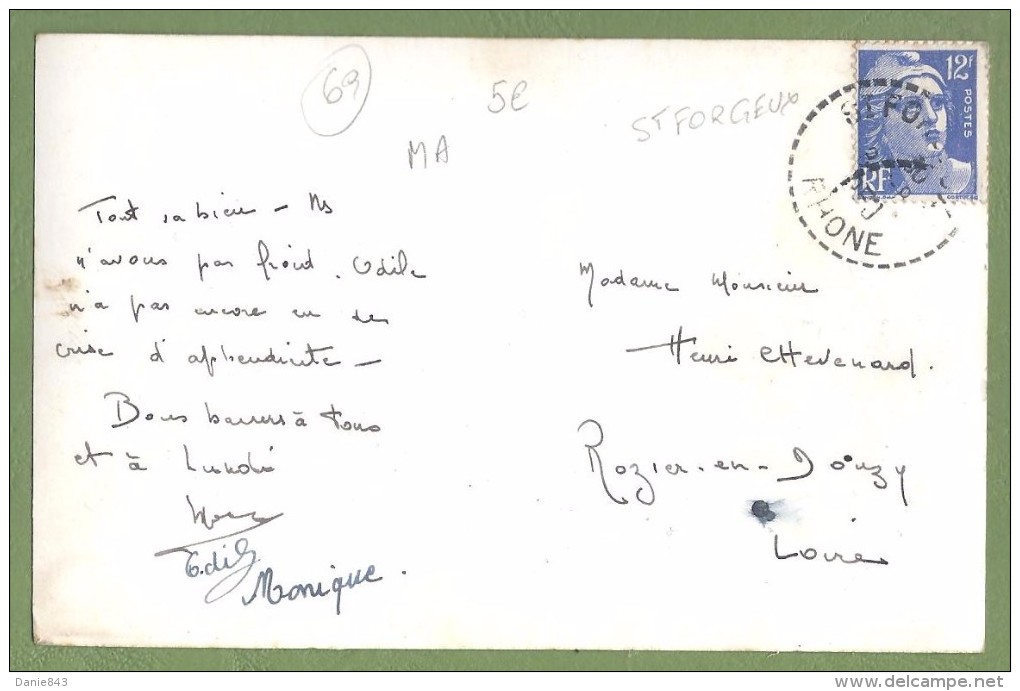 69
5€
ST FORGEUX
MA
12F
POSTES
RF
RHONE
Tout va bien - Ns
n'avons pas froid. Odile
n'a pas encore eu de
crise d'appendicite -
Bons baisers à tous
et à Lundi
Odile
Monique.
Madame Monsieur
Henri Chevenard.
Rozier-en-Donzy
Loire
Danie843
delcampe.net